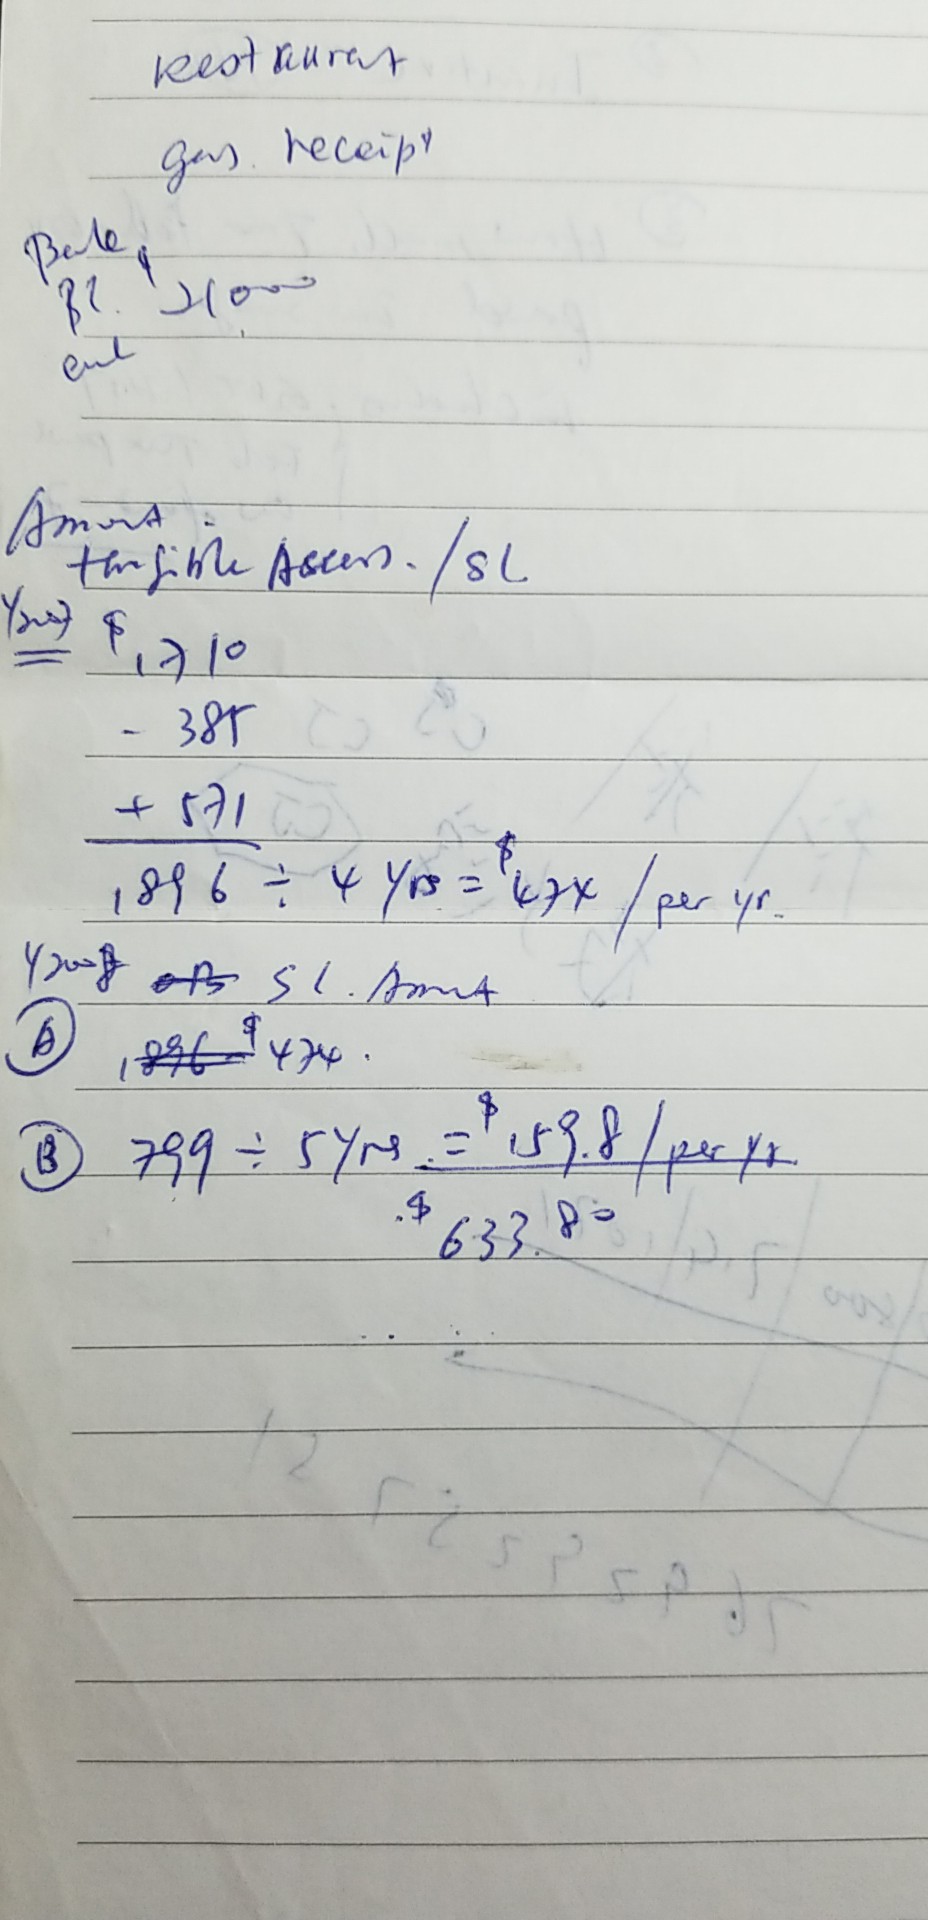 Restaurant
gas receipt
$21000
Amort
tangible Assets. / SL
Y2007 $1,710
- 385
+ 571
1,896 ÷ 4 yrs = $474 / per yr.
Y2008 SL. Amort
(A) $474.
(B) 799 ÷ 5 yrs. = $159.8 / per yr.
$633.80